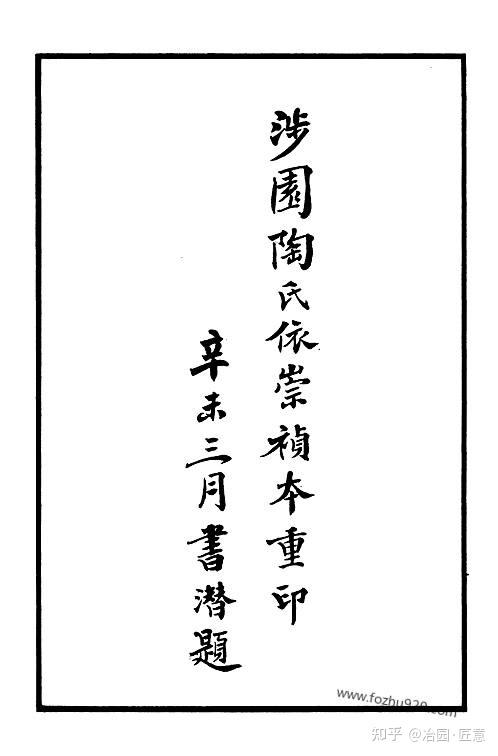 涉園陶氏依崇禎本重印
辛未三月書潛題
www.fozhu920.com
知乎 @冶园·匠意